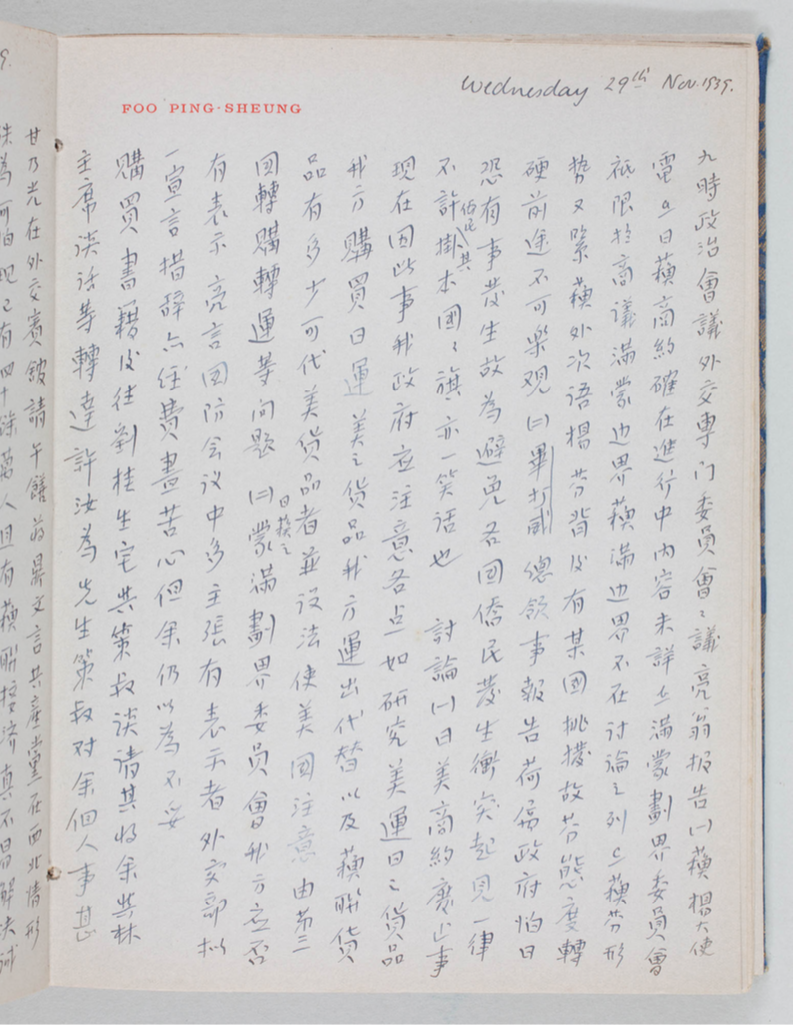 Wednesday 29th Nov. 1939.
FOO PING-SHEUNG
九時政治會議外交專門委員會〻議亮翁报告㈠蘓楊大使
電a日蘓商約確在進行中内容未詳b滿蒙劃界委員會
祗限於商議滿蒙边界蘓滿边界不在討論之列c蘓芬形
势又緊蘓外次语楊芬背后有某國挑撥故芬態度轉
硬前途不可樂观㈡畢打威總領事報告荷屬政府怕日
恐有事发生故為避免各国僑民发生衝突起見一律
不許掛其本國〻旗亦一笑话也 討論㈠日美商約废止事
现在因此事我政府应注意各点如研究美運日之貨品
我方購買日運美之貨品我方運出代替以及蘓聯貨
品有多少可代美貨品者並设法使美國注意由第三
国轉購轉運等问题㈡日蘓之蒙滿劃界委員會我方应否
有表示亮言国防会议中多主張有表示者外交部拟
一宣言措辞亦任費盡苦心但余仍以為不妥
購買書籍后往劉桂生宅共策叔谈请其将余共林
主席谈话等轉達許汝為先生策叔对余個人事甚
甘乃光在外交賓舘請午饍蒋鼎文言共產黨在西北情形